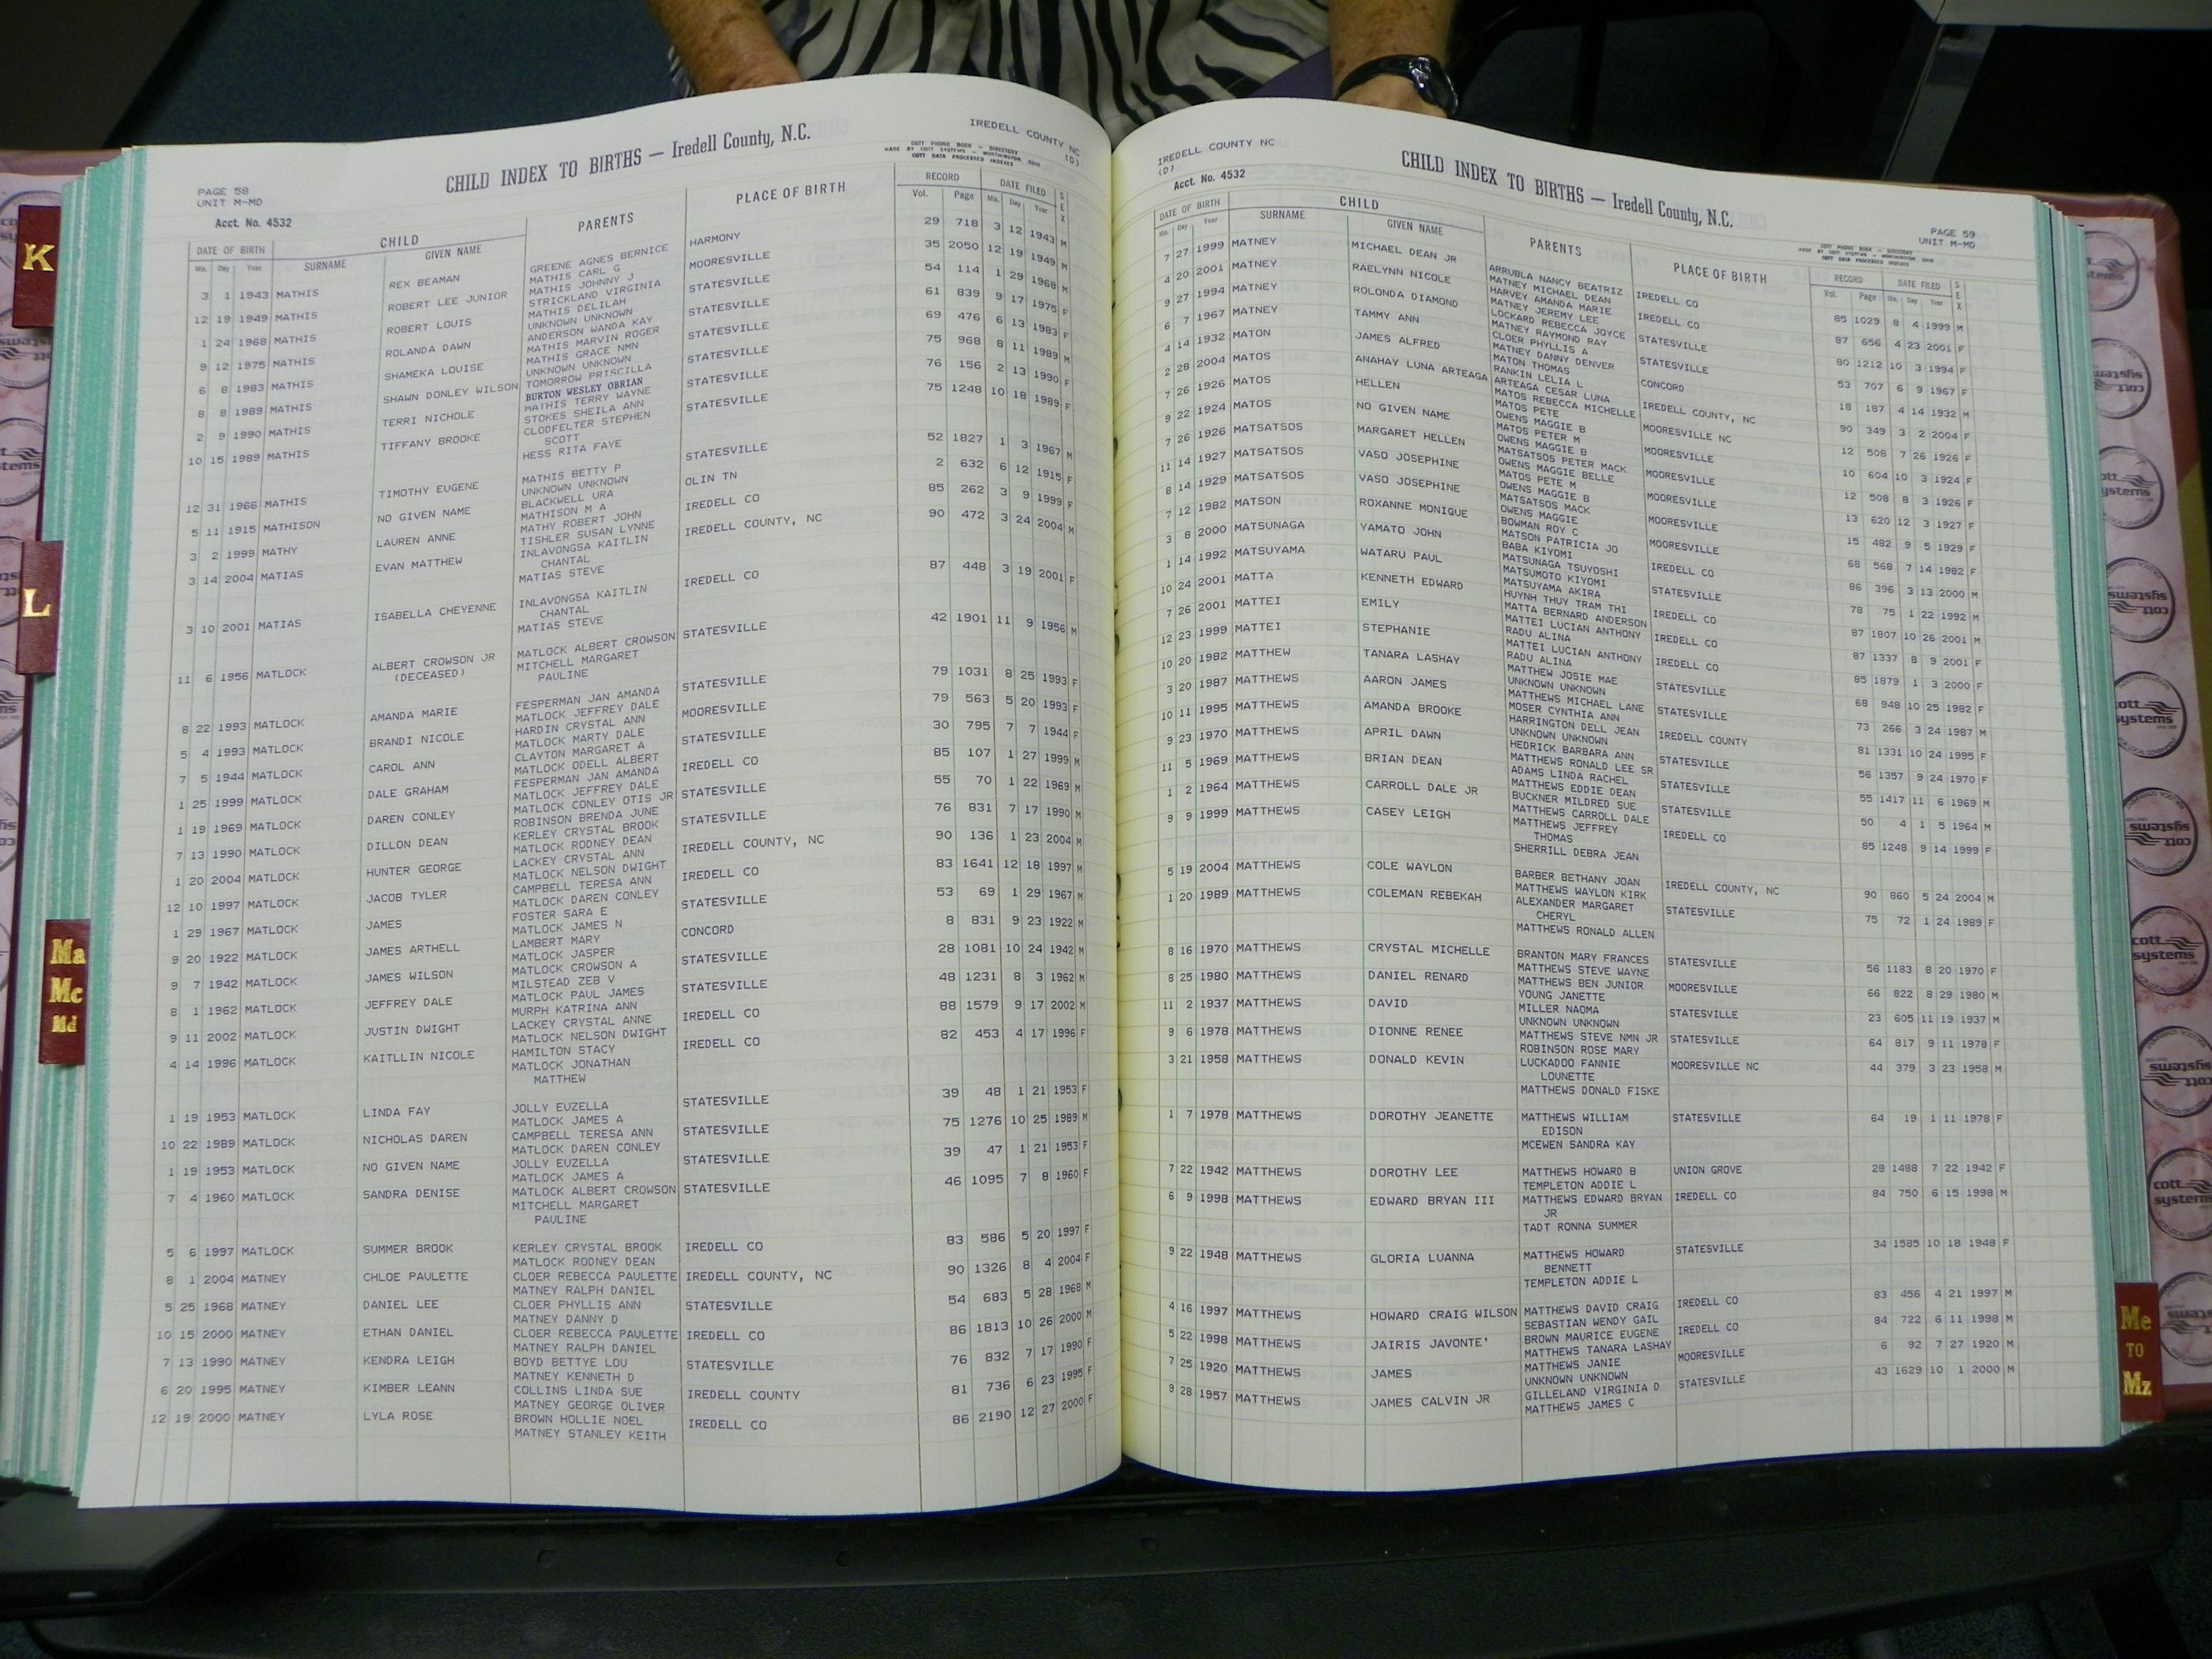 K
L
Ma
Mc
Md
PAGE 58
UNIT M-MD
Acct. No. 4532
CHILD INDEX TO BIRTHS — Iredell County, N.C.
IREDELL COUNTY NC
(D)
COTT PHONE BOOK - DIRECTORY
MADE BY COTT SYSTEMS - WORTHINGTON OHIO
COTT DATA PROCESSED INDEXES
DATE OF BIRTH CHILD PARENTS PLACE OF BIRTH RECORD DATE FILED SEX
Mo. Day Year SURNAME GIVEN NAME Vol. Page Mo. Day Year
3 1 1943 MATHIS REX BEAMAN GREENE AGNES BERNICE HARMONY 29 718 3 12 1943 M
MATHIS CARL G
12 19 1949 MATHIS ROBERT LEE JUNIOR MATHIS JOHNNY J MOORESVILLE 35 2050 12 19 1949 M
STRICKLAND VIRGINIA
1 24 1968 MATHIS ROBERT LOUIS MATHIS DELILAH STATESVILLE 54 114 1 29 1968 M
UNKNOWN UNKNOWN
9 12 1975 MATHIS ROLANDA DAWN ANDERSON WANDA KAY STATESVILLE 61 839 9 17 1975 F
MATHIS MARVIN ROGER
6 8 1983 MATHIS SHAMEKA LOUISE MATHIS GRACE NMN STATESVILLE 69 476 6 13 1983 F
UNKNOWN UNKNOWN
8 8 1989 MATHIS SHAWN DONLEY WILSON TOMORROW PRISCILLA STATESVILLE 75 968 8 11 1989 M
BURTON WESLEY OBRIAN
2 9 1990 MATHIS TERRI NICHOLE MATHIS TERRY WAYNE STATESVILLE 76 156 2 13 1990 F
STOKES SHEILA ANN
10 15 1989 MATHIS TIFFANY BROOKE CLODFELTER STEPHEN STATESVILLE 75 1248 10 18 1989 F
SCOTT
HESS RITA FAYE
12 31 1966 MATHIS TIMOTHY EUGENE MATHIS BETTY P STATESVILLE 52 1827 1 3 1967 M
UNKNOWN UNKNOWN
5 11 1915 MATHISON NO GIVEN NAME BLACKWELL URA OLIN TN 2 632 6 12 1915 F
MATHISON M A
3 2 1999 MATHY LAUREN ANNE MATHY ROBERT JOHN IREDELL CO 85 262 3 9 1999 F
TISHLER SUSAN LYNNE
3 14 2004 MATIAS EVAN MATTHEW INLAVONGSA KAITLIN IREDELL COUNTY, NC 90 472 3 24 2004 M
CHANTAL
MATIAS STEVE
3 10 2001 MATIAS ISABELLA CHEYENNE INLAVONGSA KAITLIN IREDELL CO 87 448 3 19 2001 F
CHANTAL
MATIAS STEVE
11 6 1956 MATLOCK ALBERT CROWSON JR MATLOCK ALBERT CROWSON STATESVILLE 42 1901 11 9 1956 M
(DECEASED) MITCHELL MARGARET
PAULINE
8 22 1993 MATLOCK AMANDA MARIE FESPERMAN JAN AMANDA STATESVILLE 79 1031 8 25 1993 F
MATLOCK JEFFREY DALE
5 4 1993 MATLOCK BRANDI NICOLE HARDIN CRYSTAL ANN MOORESVILLE 79 563 5 20 1993 F
MATLOCK MARTY DALE
7 5 1944 MATLOCK CAROL ANN CLAYTON MARGARET A STATESVILLE 30 795 7 7 1944 F
MATLOCK ODELL ALBERT
1 25 1999 MATLOCK DALE GRAHAM FESPERMAN JAN AMANDA IREDELL CO 85 107 1 27 1999 M
MATLOCK JEFFREY DALE
1 19 1969 MATLOCK DAREN CONLEY MATLOCK CONLEY OTIS JR STATESVILLE 55 70 1 22 1969 M
ROBINSON BRENDA JUNE
7 13 1990 MATLOCK DILLON DEAN KERLEY CRYSTAL BROOK STATESVILLE 76 831 7 17 1990 M
MATLOCK RODNEY DEAN
1 20 2004 MATLOCK HUNTER GEORGE LACKEY CRYSTAL ANN IREDELL COUNTY, NC 90 136 1 23 2004 M
MATLOCK NELSON DWIGHT
12 10 1997 MATLOCK JACOB TYLER CAMPBELL TERESA ANN IREDELL CO 83 1641 12 18 1997 M
MATLOCK DAREN CONLEY
1 29 1967 MATLOCK JAMES FOSTER SARA E STATESVILLE 53 69 1 29 1967 M
MATLOCK JAMES N
9 20 1922 MATLOCK JAMES ARTHELL LAMBERT MARY CONCORD 8 831 9 23 1922 M
MATLOCK JASPER
9 7 1942 MATLOCK JAMES WILSON MATLOCK CROWSON A STATESVILLE 28 1081 10 24 1942 M
MILSTEAD ZEB V
8 1 1962 MATLOCK JEFFREY DALE MATLOCK PAUL JAMES STATESVILLE 48 1231 8 3 1962 M
MURPH KATRINA ANN
9 11 2002 MATLOCK JUSTIN DWIGHT LACKEY CRYSTAL ANNE IREDELL CO 88 1579 9 17 2002 M
MATLOCK NELSON DWIGHT
4 14 1996 MATLOCK KAITLLIN NICOLE HAMILTON STACY IREDELL CO 82 453 4 17 1996 F
MATLOCK JONATHAN
MATTHEW
1 19 1953 MATLOCK LINDA FAY JOLLY EUZELLA STATESVILLE 39 48 1 21 1953 F
MATLOCK JAMES A
10 22 1989 MATLOCK NICHOLAS DAREN CAMPBELL TERESA ANN STATESVILLE 75 1276 10 25 1989 M
MATLOCK DAREN CONLEY
1 19 1953 MATLOCK NO GIVEN NAME JOLLY EUZELLA STATESVILLE 39 47 1 21 1953 F
MATLOCK JAMES A
7 4 1960 MATLOCK SANDRA DENISE MATLOCK ALBERT CROWSON STATESVILLE 46 1095 7 8 1960 F
MITCHELL MARGARET
PAULINE
5 6 1997 MATLOCK SUMMER BROOK KERLEY CRYSTAL BROOK IREDELL CO 83 586 5 20 1997 F
MATLOCK RODNEY DEAN
8 1 2004 MATNEY CHLOE PAULETTE CLOER REBECCA PAULETTE IREDELL COUNTY, NC 90 1326 8 4 2004 F
MATNEY RALPH DANIEL
5 25 1968 MATNEY DANIEL LEE CLOER PHYLLIS ANN STATESVILLE 54 683 5 28 1968 M
MATNEY DANNY D
10 15 2000 MATNEY ETHAN DANIEL CLOER REBECCA PAULETTE IREDELL CO 86 1813 10 26 2000 M
MATNEY RALPH DANIEL
7 13 1990 MATNEY KENDRA LEIGH BOYD BETTYE LOU STATESVILLE 76 832 7 17 1990 F
MATNEY KENNETH D
6 20 1995 MATNEY KIMBER LEANN COLLINS LINDA SUE IREDELL COUNTY 81 736 6 23 1995 F
MATNEY GEORGE OLIVER
12 19 2000 MATNEY LYLA ROSE BROWN HOLLIE NOEL IREDELL CO 86 2190 12 27 2000 F
MATNEY STANLEY KEITH
IREDELL COUNTY NC
(D)
Acct. No. 4532
CHILD INDEX TO BIRTHS — Iredell County, N.C.
PAGE 59
UNIT M-MD
COTT PHONE BOOK - DIRECTORY
MADE BY COTT SYSTEMS - WORTHINGTON OHIO
COTT DATA PROCESSED INDEXES
DATE OF BIRTH CHILD PARENTS PLACE OF BIRTH RECORD DATE FILED SEX
Mo. Day Year SURNAME GIVEN NAME Vol. Page Mo. Day Year
7 27 1999 MATNEY MICHAEL DEAN JR ARRUBLA NANCY BEATRIZ IREDELL CO 85 1029 8 4 1999 M
MATNEY MICHAEL DEAN
4 20 2001 MATNEY RAELYNN NICOLE HARVEY AMANDA MARIE IREDELL CO 87 656 4 23 2001 F
MATNEY JEREMY LEE
9 27 1994 MATNEY ROLONDA DIAMOND LOCKARD REBECCA JOYCE STATESVILLE 80 1212 10 3 1994 F
MATNEY RAYMOND RAY
6 7 1967 MATNEY TAMMY ANN CLOER PHYLLIS A STATESVILLE 53 707 6 9 1967 F
MATNEY DANNY DENVER
4 14 1932 MATON JAMES ALFRED MATON THOMAS CONCORD 18 187 4 14 1932 M
RANKIN LELIA L
2 28 2004 MATOS ANAHAY LUNA ARTEAGA ARTEAGA CESAR LUNA IREDELL COUNTY, NC 90 349 3 2 2004 F
MATOS REBECCA MICHELLE
7 26 1926 MATOS HELLEN MATOS PETE MOORESVILLE NC 12 508 7 26 1926 F
OWENS MAGGIE B
9 22 1924 MATOS NO GIVEN NAME MATOS PETER M MOORESVILLE 10 604 10 3 1924 F
OWENS MAGGIE B
7 26 1926 MATSATSOS MARGARET HELLEN MATSATSOS PETER MACK MOORESVILLE 12 508 8 3 1926 F
OWENS MAGGIE BELLE
11 14 1927 MATSATSOS VASO JOSEPHINE MATOS PETE M MOORESVILLE 13 620 12 3 1927 F
OWENS MAGGIE B
8 14 1929 MATSATSOS VASO JOSEPHINE MATSATSOS MACK MOORESVILLE 15 482 9 5 1929 F
OWENS MAGGIE
7 12 1982 MATSON ROXANNE MONIQUE BOWMAN ROY C IREDELL CO 68 568 7 14 1982 F
MATSON PATRICIA JO
3 8 2000 MATSUNAGA YAMATO JOHN BABA KIYOMI STATESVILLE 86 396 3 13 2000 M
MATSUNAGA TSUYOSHI
1 14 1992 MATSUYAMA WATARU PAUL MATSUMOTO KIYOMI IREDELL CO 78 75 1 22 1992 M
MATSUYAMA AKIRA
10 24 2001 MATTA KENNETH EDWARD HUYNH THUY TRAM THI IREDELL CO 87 1807 10 26 2001 M
MATTA BERNARD ANDERSON
7 26 2001 MATTEI EMILY MATTEI LUCIAN ANTHONY IREDELL CO 87 1337 8 9 2001 F
RADU ALINA
12 23 1999 MATTEI STEPHANIE MATTEI LUCIAN ANTHONY STATESVILLE 85 1879 1 3 2000 F
RADU ALINA
10 20 1982 MATTHEW TANARA LASHAY MATTHEW JOSIE MAE STATESVILLE 68 948 10 25 1982 F
UNKNOWN UNKNOWN
3 20 1987 MATTHEWS AARON JAMES MATTHEWS MICHAEL LANE IREDELL COUNTY 73 266 3 24 1987 M
MOSER CYNTHIA ANN
10 11 1995 MATTHEWS AMANDA BROOKE HARRINGTON DELL JEAN STATESVILLE 81 1331 10 24 1995 F
UNKNOWN UNKNOWN
9 23 1970 MATTHEWS APRIL DAWN HEDRICK BARBARA ANN STATESVILLE 56 1357 9 24 1970 F
MATTHEWS RONALD LEE SR
11 5 1969 MATTHEWS BRIAN DEAN ADAMS LINDA RACHEL STATESVILLE 55 1417 11 6 1969 M
MATTHEWS EDDIE DEAN
1 2 1964 MATTHEWS CARROLL DALE JR BUCKNER MILDRED SUE 50 4 1 5 1964 M
MATTHEWS CARROLL DALE
9 9 1999 MATTHEWS CASEY LEIGH MATTHEWS JEFFREY IREDELL CO 85 1248 9 14 1999 F
THOMAS
SHERRILL DEBRA JEAN
5 19 2004 MATTHEWS COLE WAYLON BARBER BETHANY JOAN IREDELL COUNTY, NC 90 860 5 24 2004 M
MATTHEWS WAYLON KIRK
1 20 1989 MATTHEWS COLEMAN REBEKAH ALEXANDER MARGARET STATESVILLE 75 72 1 24 1989 F
CHERYL
MATTHEWS RONALD ALLEN
8 16 1970 MATTHEWS CRYSTAL MICHELLE BRANTON MARY FRANCES STATESVILLE 56 1183 8 20 1970 F
MATTHEWS STEVE WAYNE
8 25 1980 MATTHEWS DANIEL RENARD MATTHEWS BEN JUNIOR MOORESVILLE 66 822 8 29 1980 M
YOUNG JANETTE
11 2 1937 MATTHEWS DAVID MILLER NAOMA STATESVILLE 23 605 11 19 1937 M
UNKNOWN UNKNOWN
9 6 1978 MATTHEWS DIONNE RENEE MATTHEWS STEVE NMN JR STATESVILLE 64 817 9 11 1978 F
ROBINSON ROSE MARY
3 21 1958 MATTHEWS DONALD KEVIN LUCKADOO FANNIE MOORESVILLE NC 44 379 3 23 1958 M
LOUNETTE
MATTHEWS DONALD FISKE
1 7 1978 MATTHEWS DOROTHY JEANETTE MATTHEWS WILLIAM STATESVILLE 64 19 1 11 1978 F
EDISON
MCEWEN SANDRA KAY
7 22 1942 MATTHEWS DOROTHY LEE MATTHEWS HOWARD B UNION GROVE 28 1488 7 22 1942 F
TEMPLETON ADDIE L
6 9 1998 MATTHEWS EDWARD BRYAN III MATTHEWS EDWARD BRYAN IREDELL CO 84 750 6 15 1998 M
JR
TADT RONNA SUMMER
9 22 1948 MATTHEWS GLORIA LUANNA MATTHEWS HOWARD STATESVILLE 34 1585 10 18 1948 F
BENNETT
TEMPLETON ADDIE L
4 16 1997 MATTHEWS HOWARD CRAIG WILSON MATTHEWS DAVID CRAIG IREDELL CO 83 456 4 21 1997 M
SEBASTIAN WENDY GAIL
5 22 1998 MATTHEWS JAIRIS JAVONTE' BROWN MAURICE EUGENE IREDELL CO 84 722 6 11 1998 M
MATTHEWS TANARA LASHAY
7 25 1920 MATTHEWS JAMES MATTHEWS JANIE MOORESVILLE 6 92 7 27 1920 M
UNKNOWN UNKNOWN
9 28 1957 MATTHEWS JAMES CALVIN JR GILLELAND VIRGINIA D STATESVILLE 43 1629 10 1 2000 M
MATTHEWS JAMES C
Me
TO
Mz
cott
systems